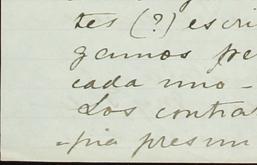 tes (?) escri
gamos pe
cada uno -
Los contra
-pia presun